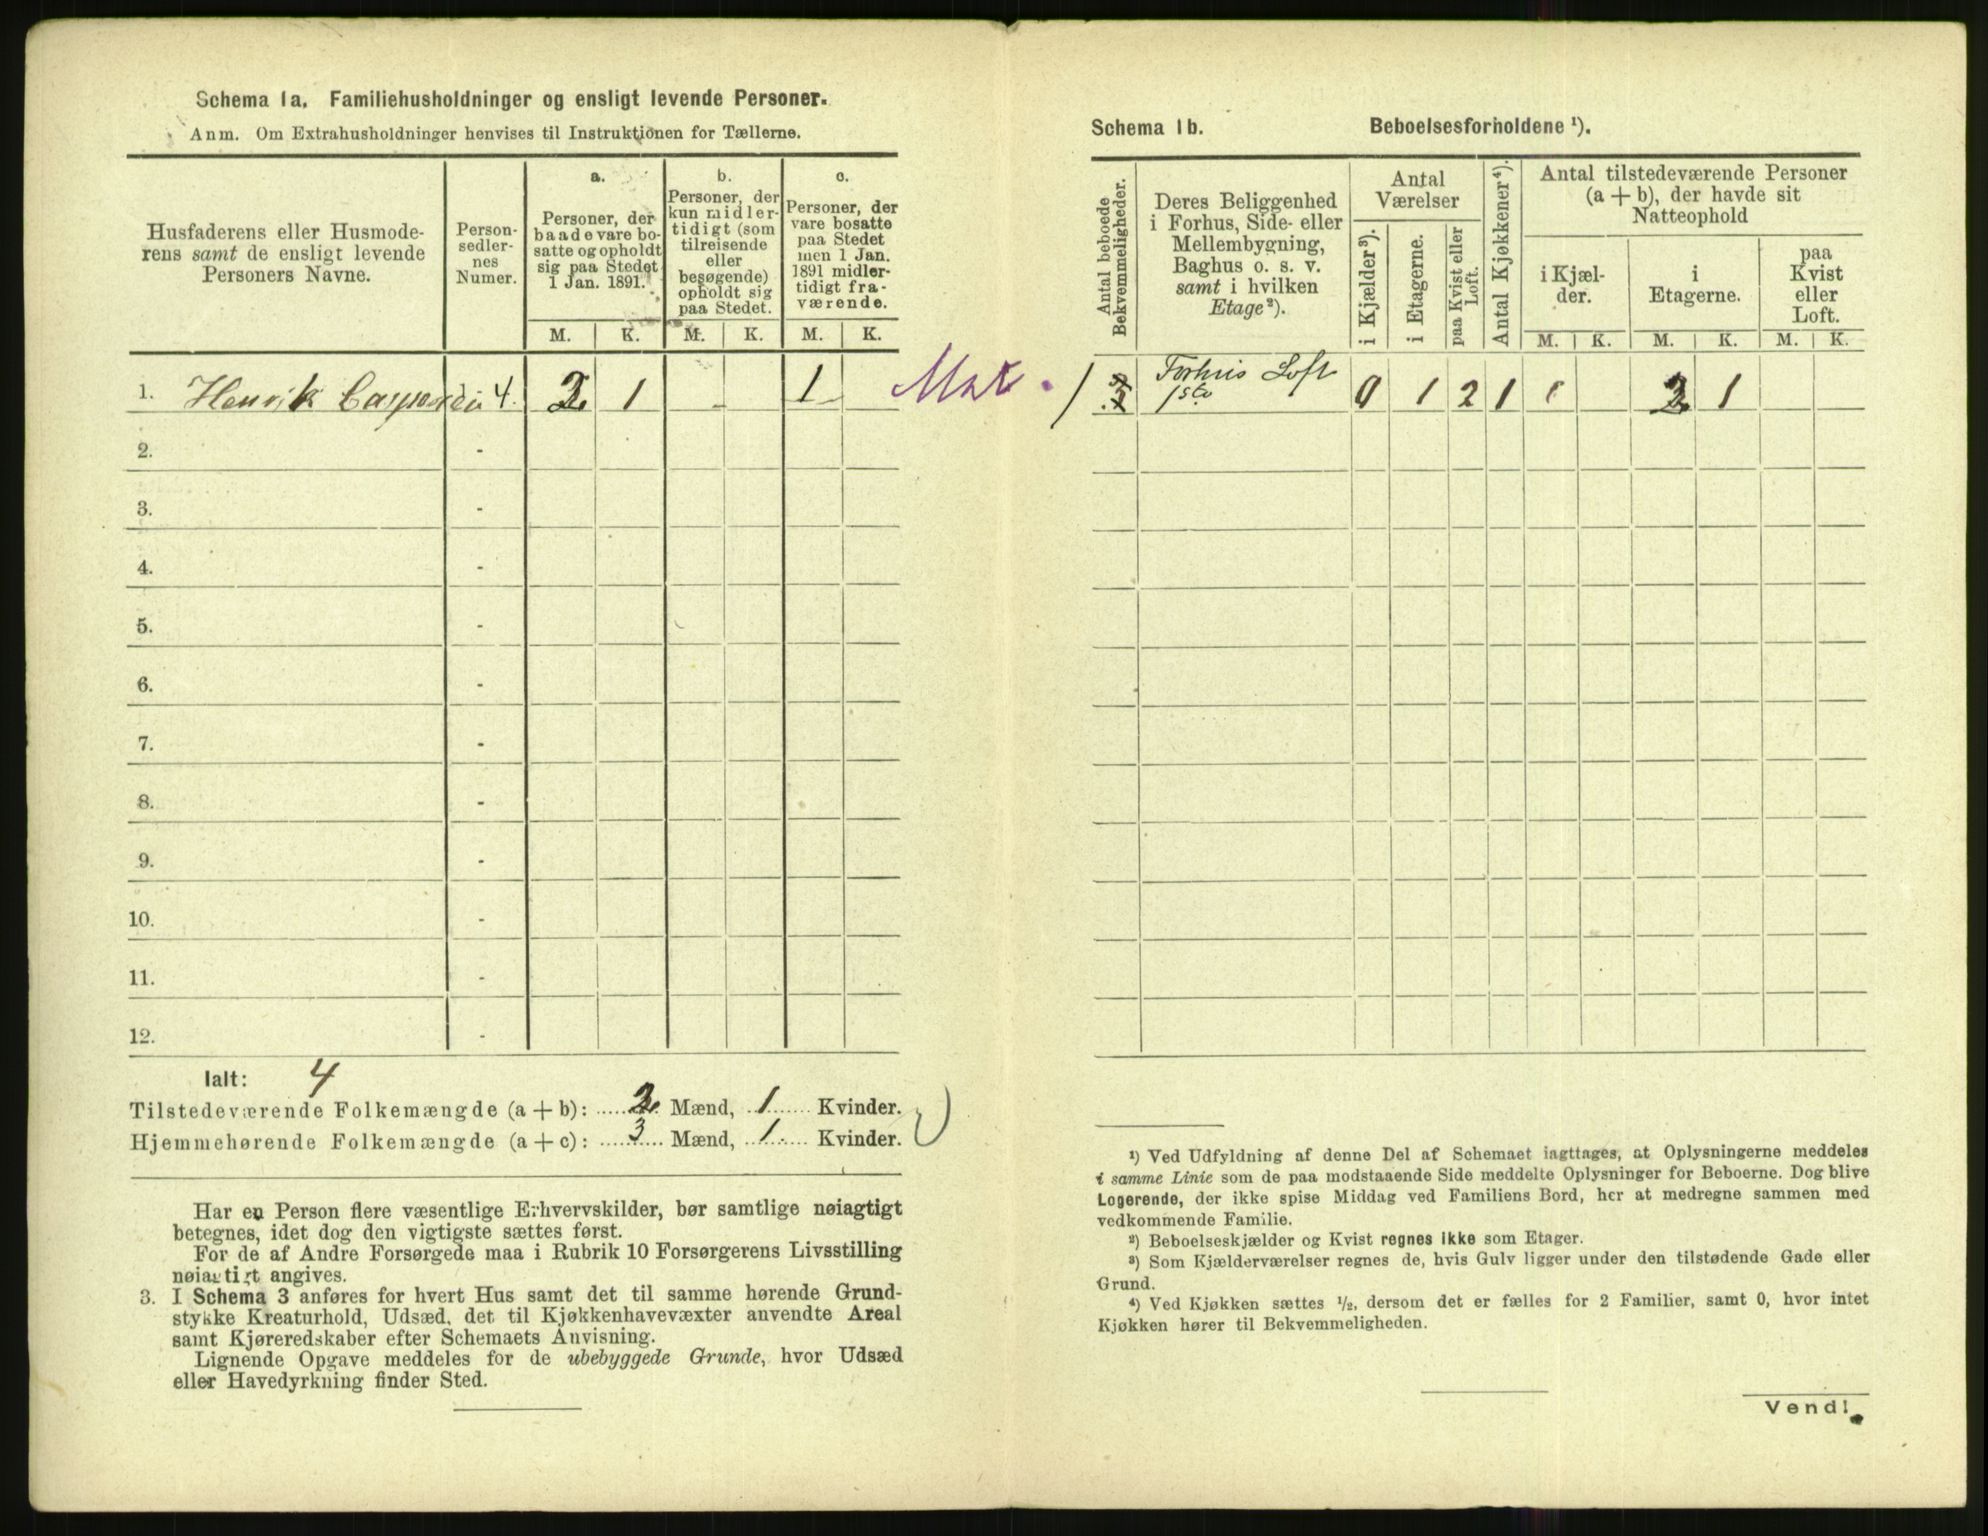 Schema 1a. Familiehusholdninger og ensligt levende Personer.
Anm. Om Extrahusholdninger henvises til Instruktionen for Tællerne.
Husfaderens eller Husmoderens samt de ensligt levende Personers Navne.
Person-
sedler-
nes
Numer.
a.
Personer, der
baade vare bo-
satte og opholdt
sig paa Stedet
1 Jan. 1891.
b.
Personer, der
kun midler-
tidigt (som
tilreisende
eller
besøgende)
opholdt sig
paa Stedet.
c.
Personer, der
vare bosatte
paa Stedet
men 1 Jan.
1891 midler-
tidigt fra-
værende.
M. K. M. K. M. K.
1. Henrik 4. 2 1 1
2. -
3. -
4. -
5. -
6. -
7. -
8. -
9. -
10. -
11. -
12. -
Ialt: 4
Tilstedeværende Folkemængde (a + b): 2 Mænd, 1 Kvinder.
Hjemmehørende Folkemængde (a + c): 3 Mænd, 1 Kvinder.
Har en Person flere væsentlige Erhvervskilder, bør samtlige nøiagtigt
betegnes, idet dog den vigtigste sættes først.
For de af Andre Forsørgede maa i Rubrik 10 Forsørgerens Livsstilling
nøiagtigt angives.
3. I Schema 3 anføres for hvert Hus samt det til samme hørende Grund-
stykke Kreaturhold, Udsæd, det til Kjøkkenhavevæxter anvendte Areal
samt Kjøreredskaber efter Schemaets Anvisning.
Lignende Opgave meddeles for de ubebyggede Grunde, hvor Udsæd
eller Havedyrkning finder Sted.
Schema 1b. Beboelsesforholdene ¹).
Antal beboede
Bekvemmeligheder.
Deres Beliggenhed
i Forhus, Side- eller
Mellembygning,
Baghus o. s. v.
samt i hvilken
Etage²).
Antal
Værelser
i Kjælder³).
i Etagerne.
paa Kvist eller
Loft.
Antal Kjøkkener⁴).
Antal tilstedeværende Personer
(a + b), der havde sit
Natteophold
i Kjæl-
der.
i
Etagerne.
paa
Kvist
eller
Loft.
M. K. M. K. M. K.
Forhus Loft
0 1 2 1 2 1
¹) Ved Udfyldning af denne Del af Schemaet iagttages, at Oplysningerne meddeles
i samme Linie som de paa modstaaende Side meddelte Oplysninger for Beboerne. Dog blive
Logerende, der ikke spise Middag ved Familiens Bord, her at medregne sammen med
vedkommende Familie.
²) Beboelseskjælder og Kvist regnes ikke som Etager.
³) Som Kjælderværelser regnes de, hvis Gulv ligger under den tilstødende Gade eller
Grund.
⁴) Ved Kjøkken sættes ¹/₂, dersom det er fælles for 2 Familier, samt 0, hvor intet
Kjøkken hører til Bekvemmeligheden.
Vend!